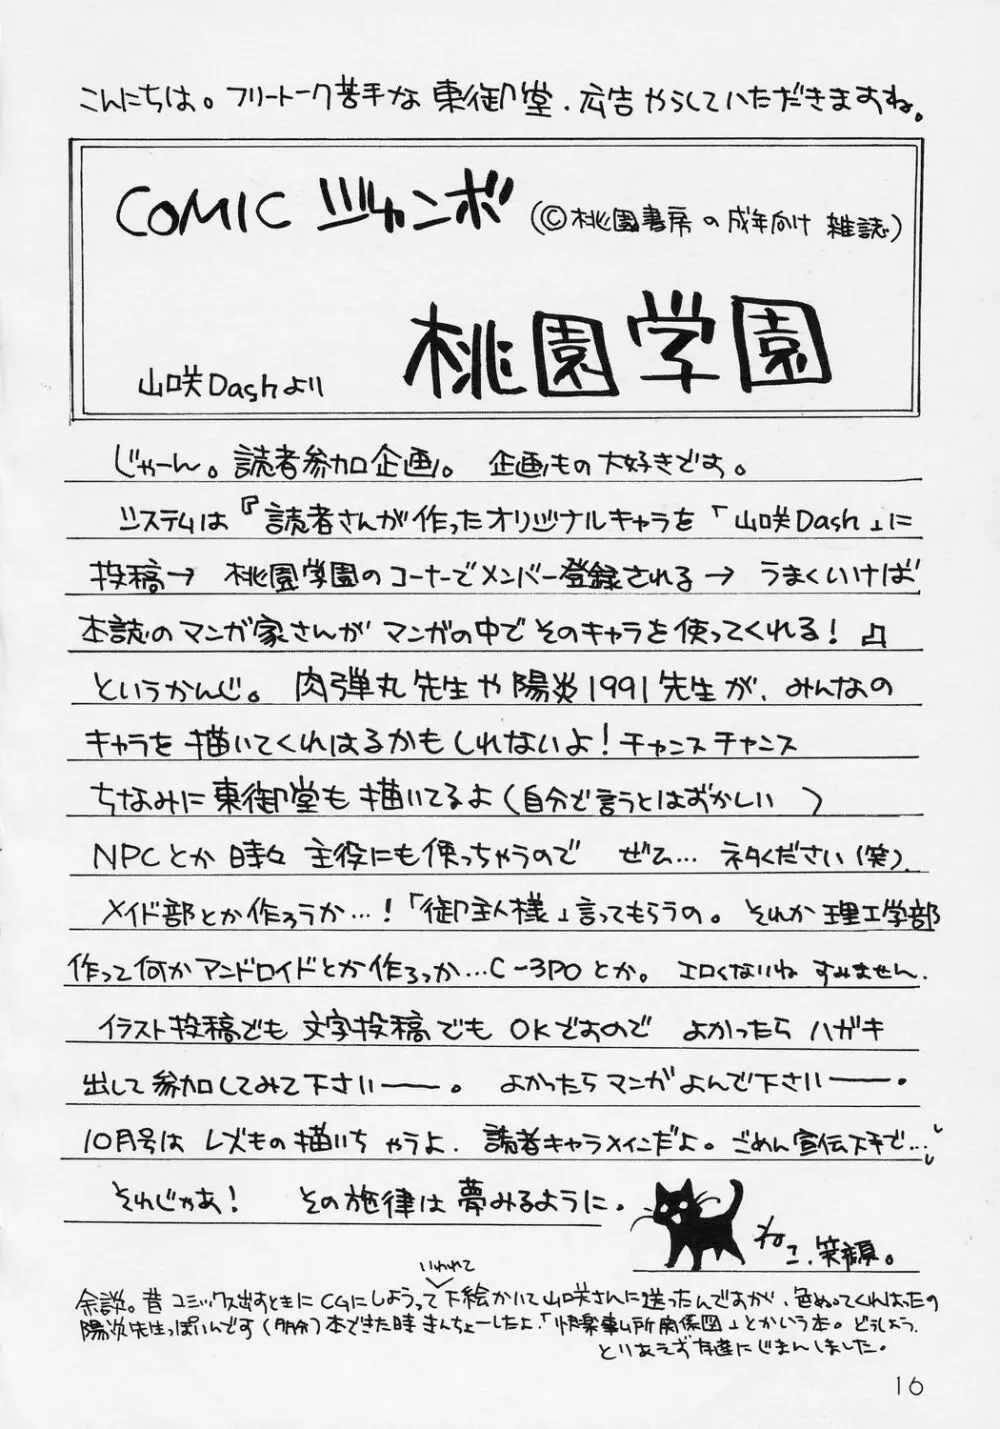 こんにちは。フリートーク苦手な東御堂、広告やらしていただきますね。
COMIC ジャンボ (©桃園書房の成年向け雑誌)
桃園学園
山咲Dashより
じゃーん。読者参加企画。企画もの大好きです。
システムは『読者さんが作ったオリジナルキャラを「山咲Dash」に
投稿→ 桃園学園のコーナーでメンバー登録される→ うまくいけば
本誌のマンガ家さんがマンガの中でそのキャラを使ってくれる!』
というかんじ。肉弾丸先生や陽炎1991先生が、みんなの
キャラを描いてくれはるかもしれないよ!チャンスチャンス
ちなみに東御堂も描いてるよ(自分で言うとはずかしい )
NPCとか時々主役にも使っちゃうので ぜひ…ネタください(笑)
メイド部とか作ろうか…!「御主人様」言ってもらうの。それか理工学部
作って何かアンドロイドとか作ろっか…C-3POとか。エロくないね すみません.
イラスト投稿でも文字投稿でもOKですので よかったらハガキ
出して参加してみて下さいーー。よかったらマンガよんで下さいーー.
10月号はレズもの描いちゃうよ.読者キャラメインだよ。ごめん宣伝下手で…
それじゃあ! その施律は夢みるように.
ねこ.笑顔。
いわれて
余談。昔コミックス出すときにCGにしようって下絵かいて山咲さんに送ったんですが、色ぬってくれはったの
陽炎先生っぽいんです(多分)本できた時きんちょーしたよ、「快楽事ム所関係図」とかいう本。どうしよう、
とりあえず友達にじまんしました.
16